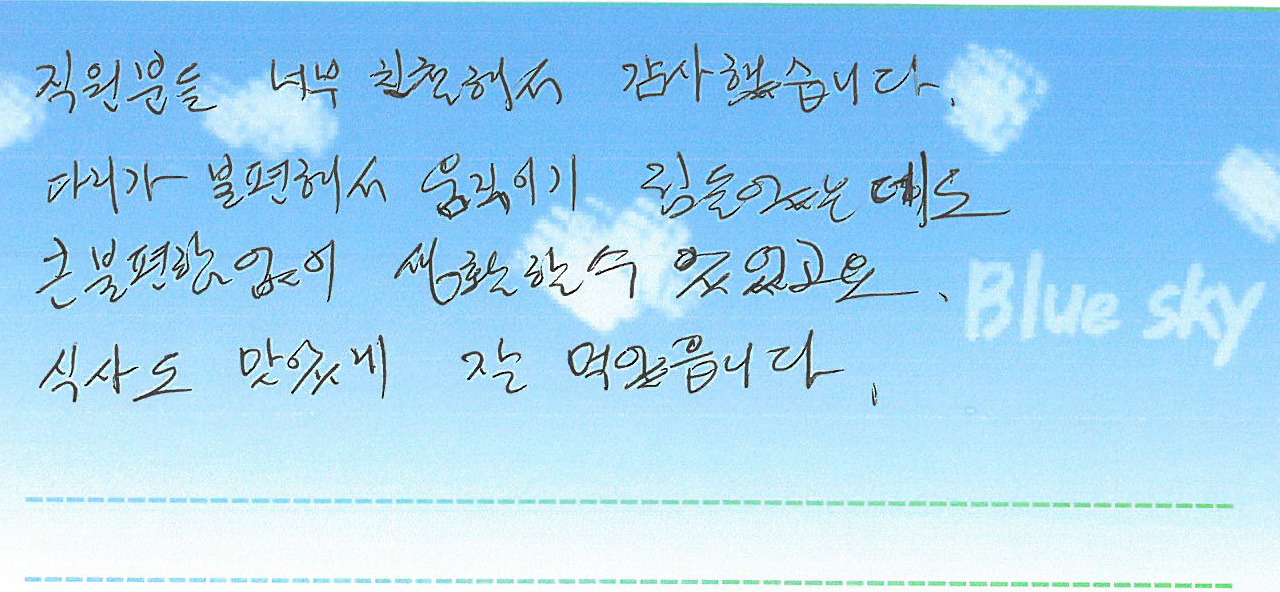 직원분들 너무 친절해서 감사했습니다.
다리가 불편해서 움직이기 힘들었는데도
큰불편함없이 생활할수 있었고요.
Blue sky
식사도 맛있게 잘 먹었습니다.